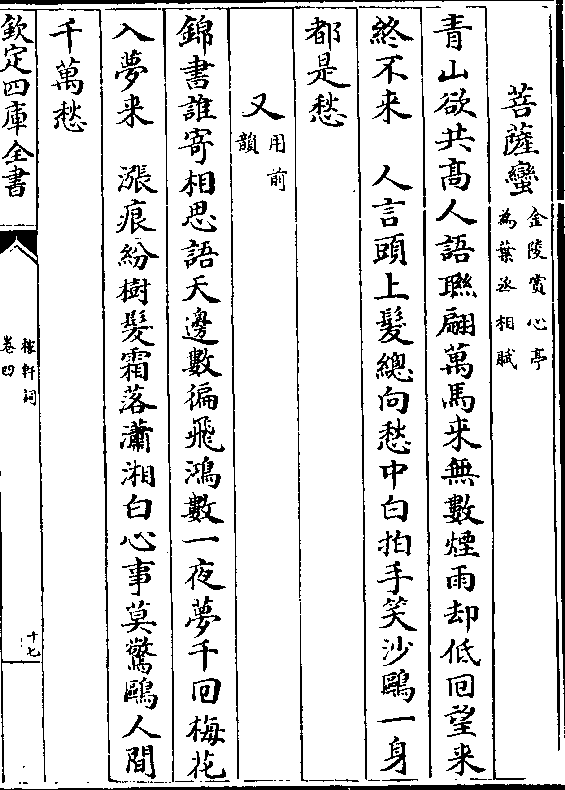 菩薩蠻 金陵賞心亭
為葉丞相賦
青山欲共髙人語聮翩萬馬来無數煙雨却低囘望来
終不来　人言頭上髮總向愁中白拍手笑沙鷗一身
都是愁
又 用前
韻
錦書誰寄相思語天邊數徧飛鴻數一夜夢千囘梅花
入夢来　漲痕紛樹髮霜落瀟湘白心事莫驚鷗人間
千萬愁
欽定四庫全書
稼軒詞
卷四
十七